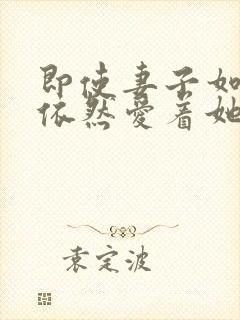 即使妻子如
依然爱着她
袁定波